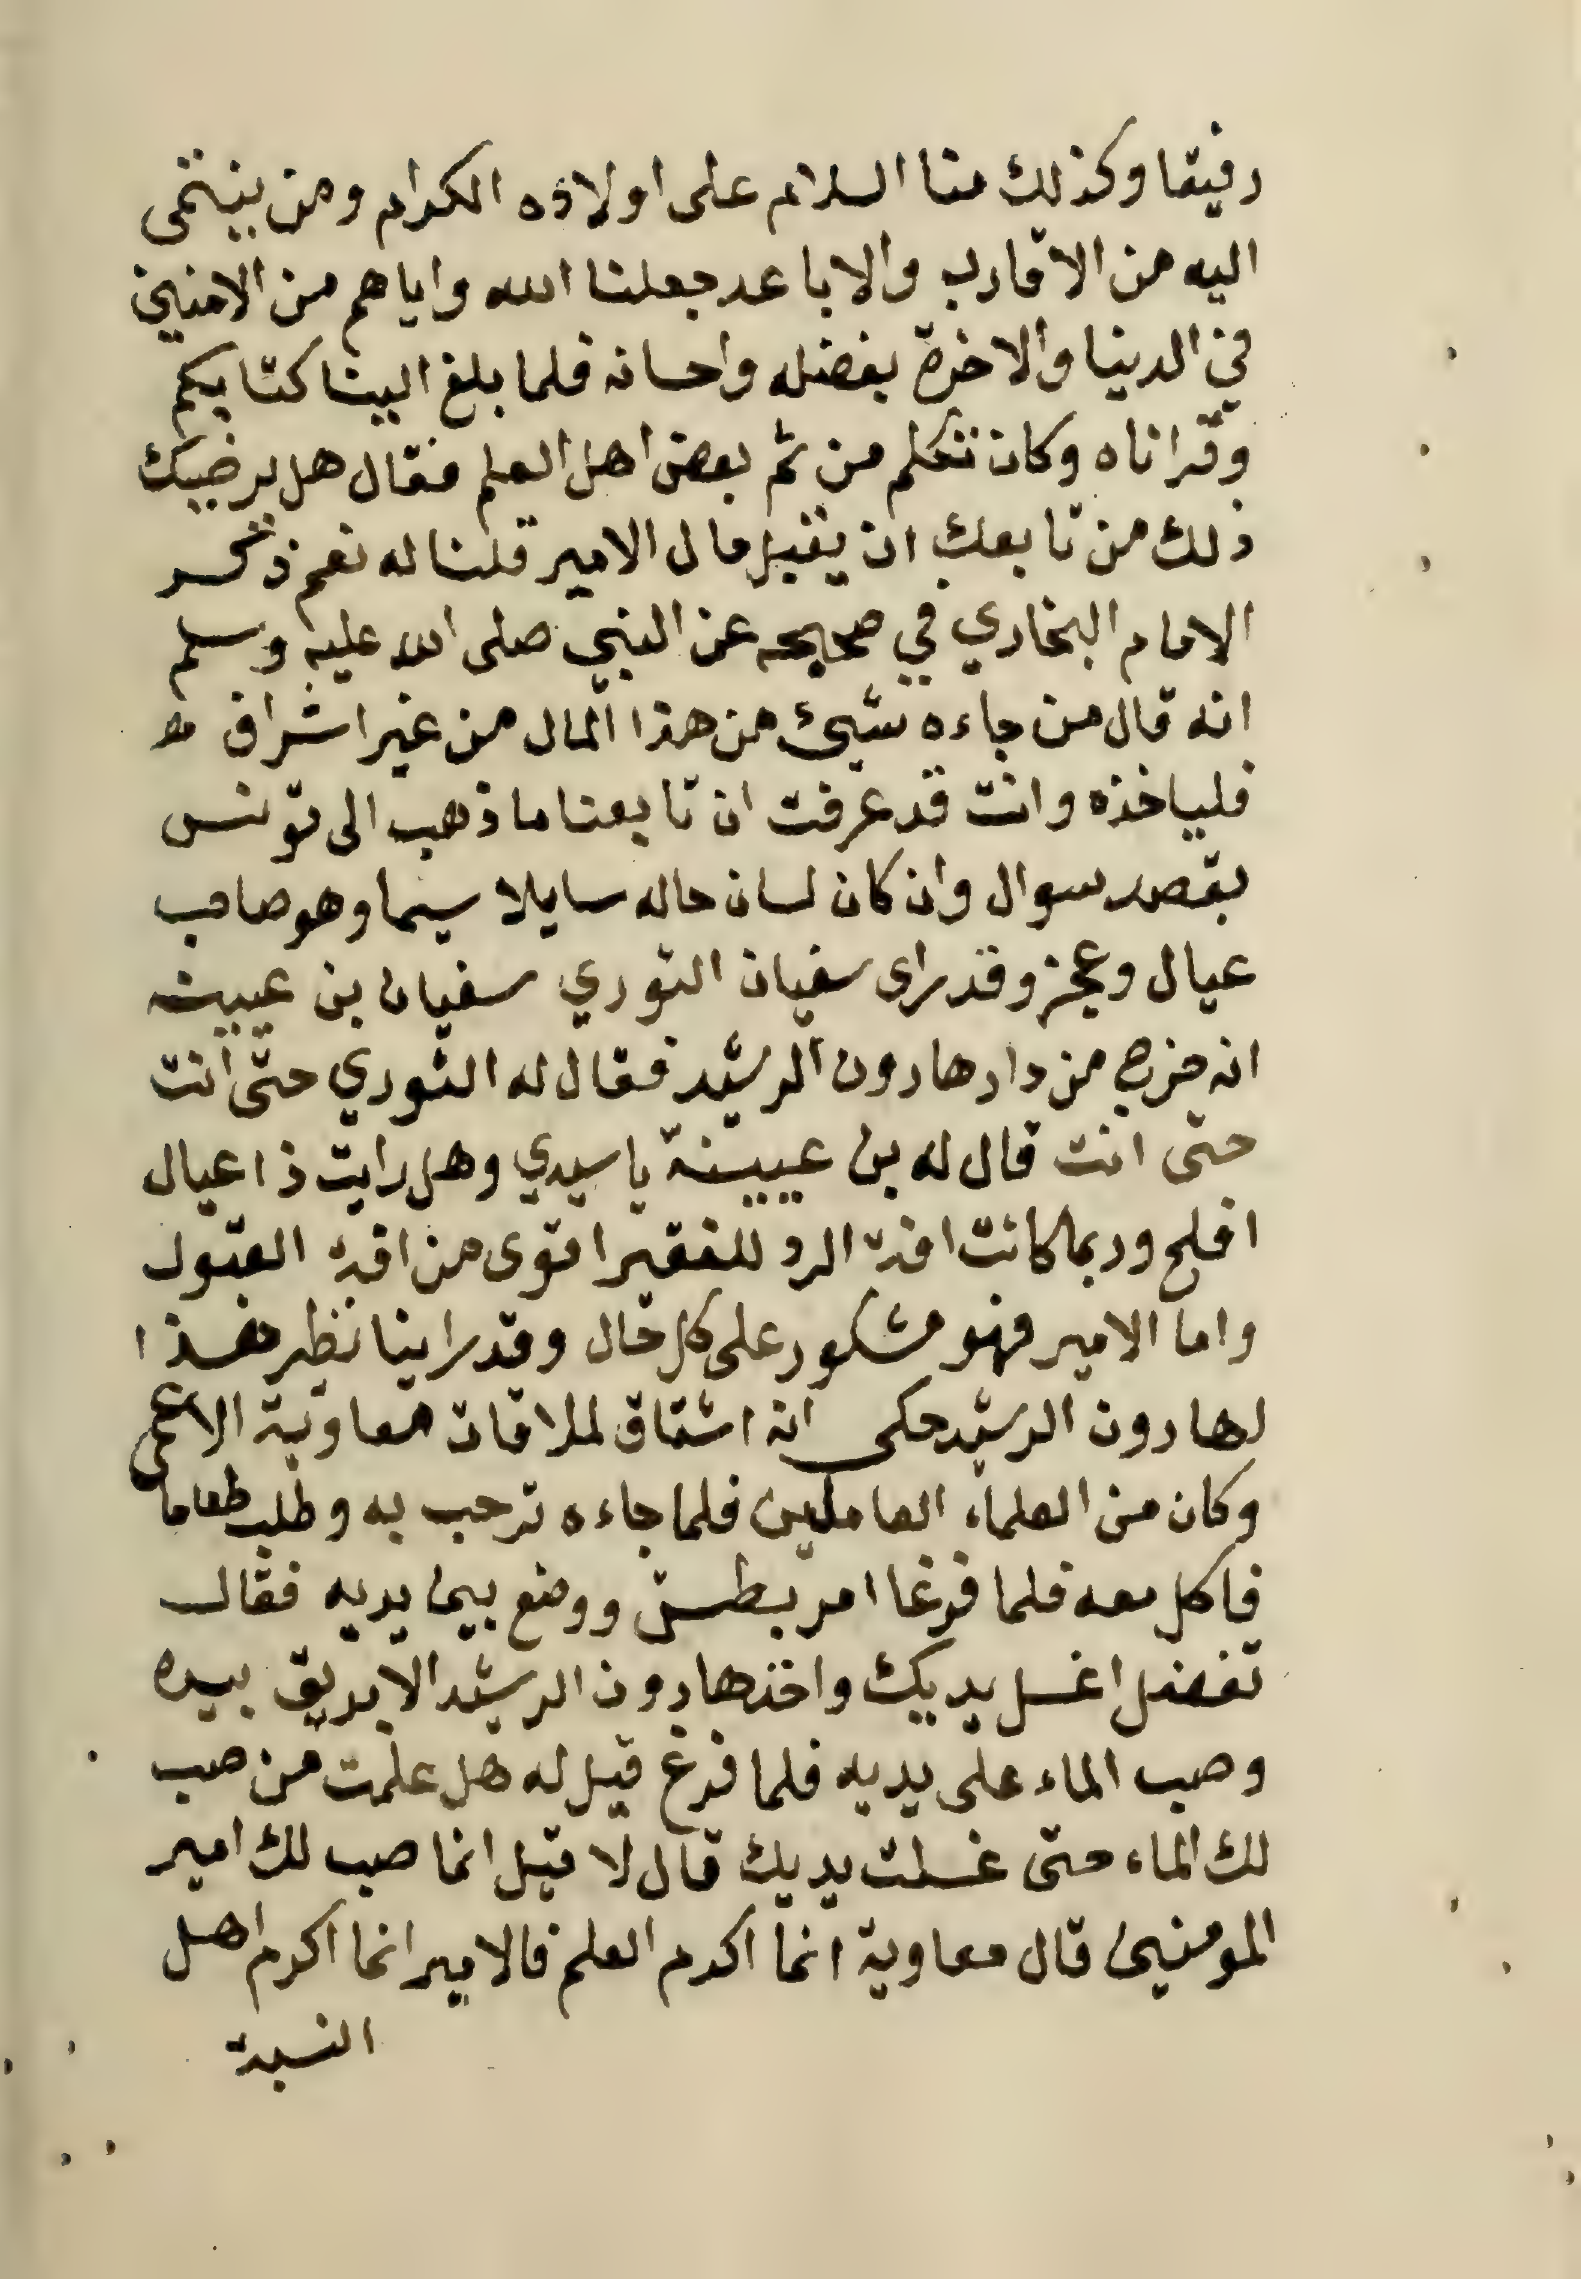 رفيقا وكذلك منا السلام على اولاده الكرام ومن ينتمى
اليه من الاقارب والاباعد جعلنا الله واياهم من الامنين
في الدنيا والاخرة بفضله واحسانه فلما بلغ الينا كتابكم
وقراناه وكان تكلم من ثم بعض اهل العلم فقال هل يرضيك
ذلك من تابعك ان يقبل مال الامير قلنا له نعم ذكر
الامام البخاري في صحيحه عن النبي صلى الله عليه وسلم
انه قال من جاءه شيئ من هذا المال من غير اشراف
فلياخذه وانت قد عرفت ان تابعنا ما ذهب الى تونس
بقصد سوال وان كان لسان حاله سايلا سيما وهو صاحب
عيال وعجز وقد راى سفيان الثوري سفيان بن عيينه
انه خرج من دار هارون الرشيد فقال له الثوري حتى انت
حتى انت قال له بن عيينة يا سيدي وهل رايت ذا عيال
افلح وربما كانت افة الرد للفقير اقوى من افة القبول
واما الامير فهو مشكور على كل حال وقد راينا نظير هذا
لهارون الرشيد حكى انه اشتاق لملاقات معاوية الاعمى
وكان من العلماء العاملين فلما جاءه ترحب به وطلب طعاما
فاكل معه فلما فرغا امر بطست ووضع بين يديه فقال
تفضل اغسل يديك واخذ هارون الرشيد الابريق بيده
وصب الماء على يديه فلما فرغ قيل له هل علمت من صب
لك الماء حتى غسلت يديك قال لا قيل انما صب لك امير
المومنين قال معاوية انما اكرم العلم فالامير انما اكرم اهل
النسبة